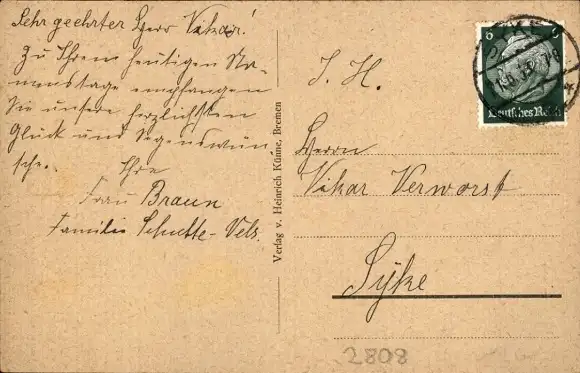 Sehr geehrter Herr Vikar!
Zu Ihrem heutigen Na-
menstage empfangen
Sie unsere herzlichsten
Glück und Segenswün-
sche. Ihre
Frau Braun
Familie Schutte-Vels.
Verlag v. Heinrich Künne, Bremen
6 6
Deutsches Reich
S. H.
Herrn
Vikar Verworst
Syke
2808